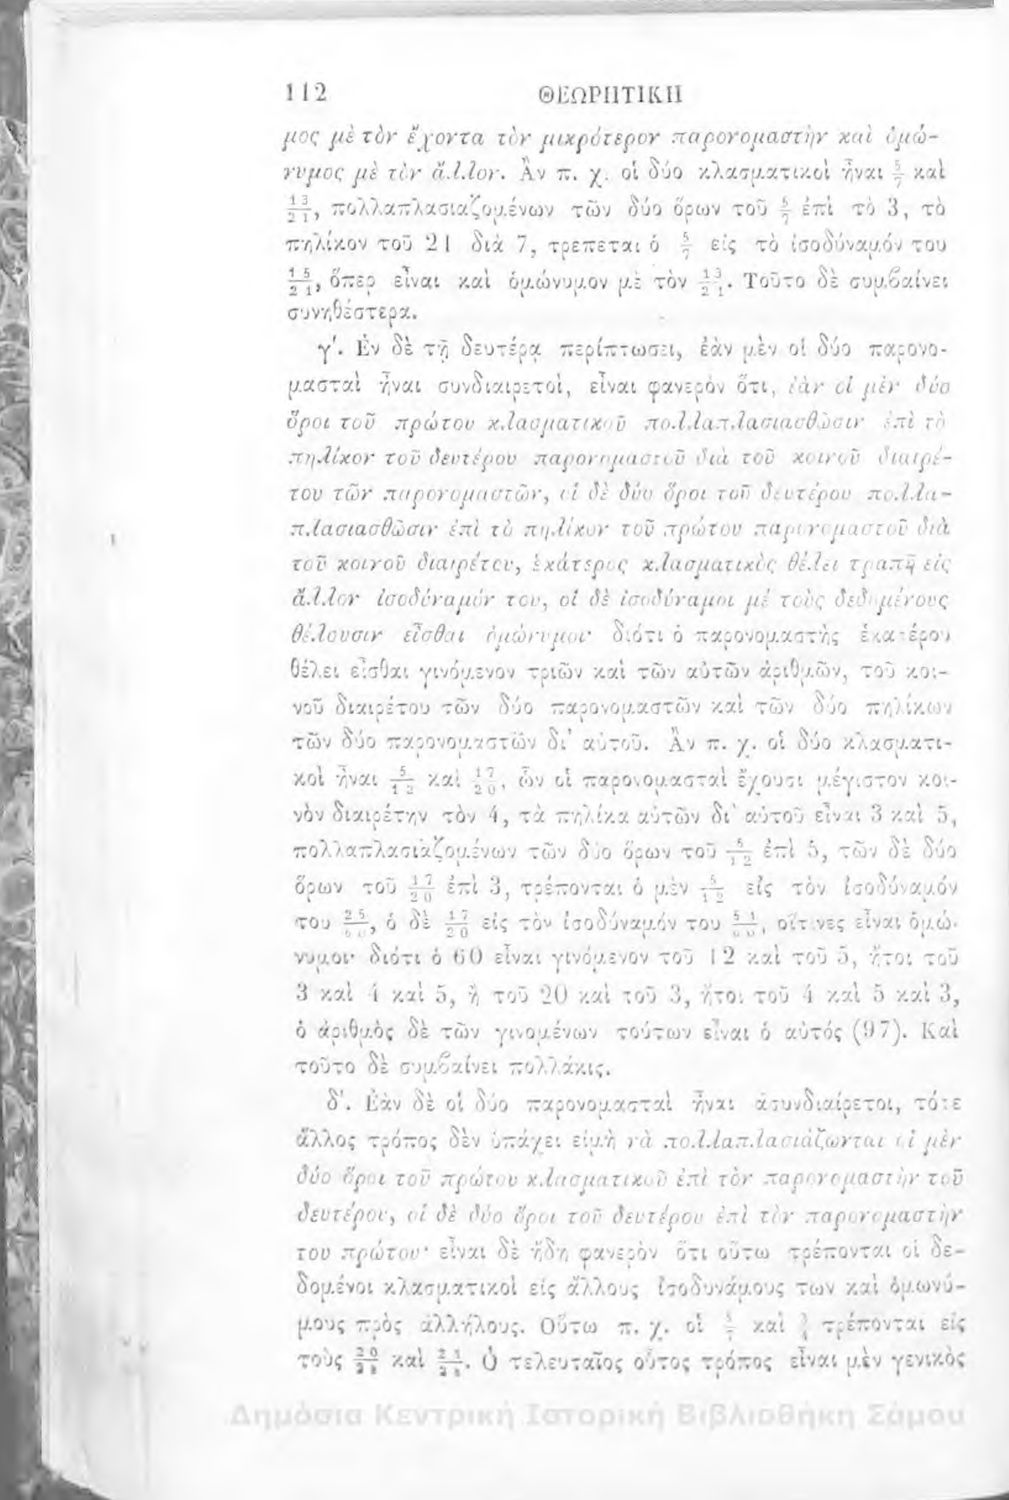 112 ΘΕΩΡΗΤΙΚΗ
μος μὲ τὸν ἔχοντα τὸν μικρότερον παρονομαστὴν καὶ ὁμώ-
νυμος μὲ τὸν ἄλλον. Ἂν π. χ. οἱ δύο κλασματικοὶ ἦναι 5/7 καὶ
13/21, πολλαπλασιαζομένων τῶν δύο ὅρων τοῦ 5/7 ἐπὶ τὸ 3, τὸ
πηλίκον τοῦ 21 διὰ 7, τρέπεται ὁ 5/7 εἰς τὸ ἰσοδύναμόν του
15/21, ὅπερ εἶναι καὶ ὁμώνυμον μὲ τὸν 13/21. Τοῦτο δὲ συμβαίνει
συνηθέστερα.
γ'. Ἐν δὲ τῇ δευτέρᾳ περίπτωσει, ἐὰν μὲν οἱ δύο παρονο-
μασταὶ ἦναι συνδιαιρετοὶ, εἶναι φανερὸν ὅτι, ἐὰν οἱ μὲν δύο
ὅροι τοῦ πρώτου κλασματικοῦ πολλαπλασιασθῶσιν ἐπὶ τὸ
πηλίκον τοῦ δευτέρου παρονομαστοῦ διὰ τοῦ κοινοῦ διαιρέ-
του τῶν παρονομαστῶν, οἱ δὲ δύο ὅροι τοῦ δευτέρου πολλα-
πλασιασθῶσιν ἐπὶ τὸ πηλίκον τοῦ πρώτου παρονομαστοῦ διὰ
τοῦ κοινοῦ διαιρέτου, ἑκάτερος κλασματικὸς θέλει τραπῆ εἰς
ἄλλον ἰσοδύναμόν του, οἱ δὲ ἰσοδύναμοι μὲ τοὺς δεδομένους
θέλουσιν εἶσθαι ὁμώνυμοι· διότι ὁ παρονομαστὴς ἑκατέρου
θέλει εἶσθαι γινόμενον τριῶν καὶ τῶν αὐτῶν ἀριθμῶν, τοῦ κοι-
νοῦ διαιρέτου τῶν δύο παρονομαστῶν καὶ τῶν δύο πηλίκων
τῶν δύο παρονομαστῶν δι' αὐτοῦ. Ἂν π. χ. οἱ δύο κλασματι-
κοὶ ἦναι 5/12 καὶ 17/20, ὧν οἱ παρονομασταὶ ἔχουσι μέγιστον κοι-
νὸν διαιρέτην τὸν 4, τὰ πηλίκα αὐτῶν δι' αὐτοῦ εἶναι 3 καὶ 5,
πολλαπλασιαζομένων τῶν δύο ὅρων τοῦ 5/12 ἐπὶ 5, τῶν δὲ δύο
ὅρων τοῦ 17/20 ἐπὶ 3, τρέπονται ὁ μὲν 5/12 εἰς τὸν ἰσοδύναμόν
του 25/60, ὁ δὲ 17/20 εἰς τὸν ἰσοδύναμόν του 51/60, οἵτινες εἶναι ὁμώ-
νυμοι· διότι ὁ 60 εἶναι γινόμενον τοῦ 12 καὶ τοῦ 5, ἤτοι τοῦ
3 καὶ 4 καὶ 5, ἢ τοῦ 20 καὶ τοῦ 3, ἤτοι τοῦ 4 καὶ 5 καὶ 3,
ὁ ἀριθμὸς δὲ τῶν γινομένων τούτων εἶναι ὁ αὐτός (97). Καὶ
τοῦτο δὲ συμβαίνει πολλάκις.
δ'. Ἐὰν δὲ οἱ δύο παρονομασταὶ ἦναι ἀσυνδιαίρετοι, τότε
ἄλλος τρόπος δὲν ὑπάχει εἰμὴ νὰ πολλαπλασιάζωνται οἱ μὲν
δύο ὅροι τοῦ πρώτου κλασματικοῦ ἐπὶ τὸν παρονομαστὴν τοῦ
δευτέρου, οἱ δὲ δύο ὅροι τοῦ δευτέρου ἐπὶ τὸν παρονομαστὴν
του πρώτου· εἶναι δὲ ἤδη φανερὸν ὅτι οὕτω τρέπονται οἱ δε-
δομένοι κλασματικοὶ εἰς ἄλλους ἰσοδυνάμους των καὶ ὁμωνύ-
μους πρὸς ἀλλήλους. Οὕτω π. χ. οἱ καὶ τρέπονται εἰς
τοὺς καὶ Ὁ τελευταῖος οὗτος τρόπος εἶναι μὲν γενικὸς
Δημόσια Κεντρική Ιστορική Βιβλιοθήκη Σάμου